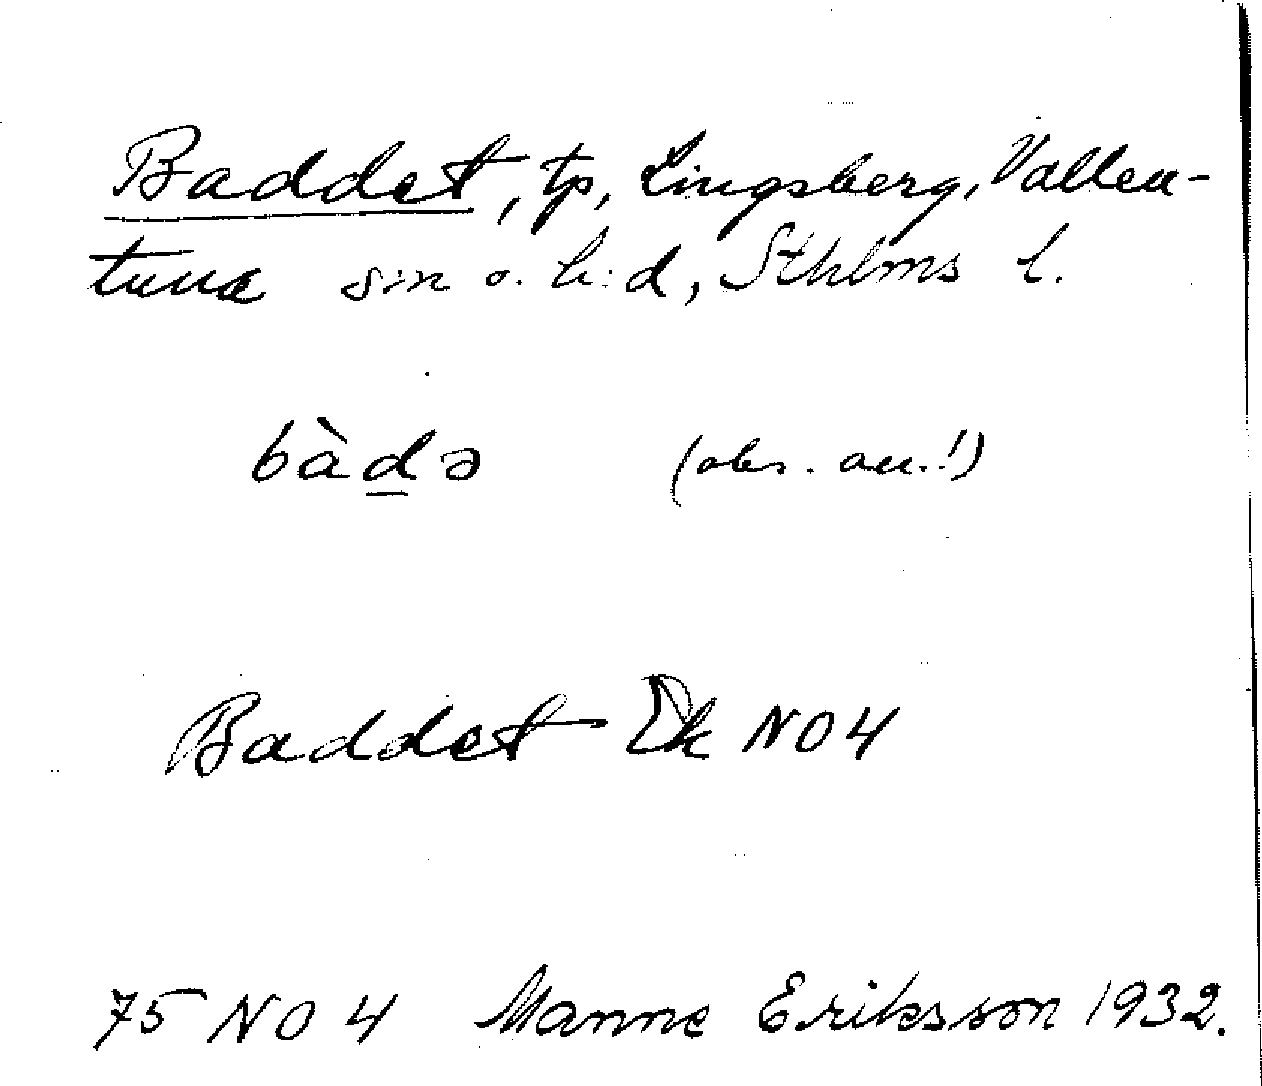 Baddet, tp, Lingsberg, Vallen-
tuna sn o. h:d, Sthlms l.
bàdə (obs. acc.!)
Baddet Ek NO4
75 NO 4 Manne Eriksson 1932.